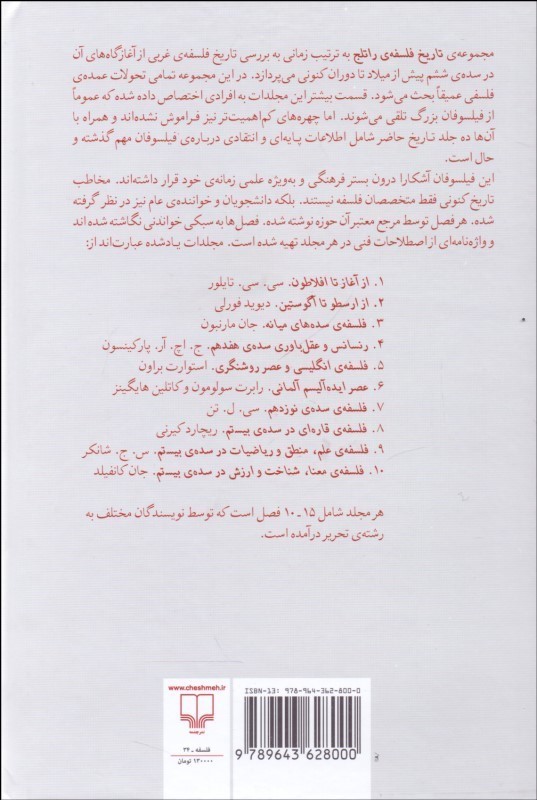 مجموعه‌ی تاریخ فلسفه‌ی راتلج به ترتیب زمانی به بررسی تاریخ فلسفه‌ی غربی از آغازگاه‌های آن
در سده‌ی ششم پیش از میلاد تا دوران کنونی می‌پردازد. در این مجموعه تمامی تحولات عمده‌ی
فلسفی عمیقاً بحث می‌شود. قسمت بیشتر این مجلدات به افرادی اختصاص داده شده که عموماً
از فیلسوفان بزرگ تلقی می‌شوند. اما چهره‌های کم‌اهمیت‌تر نیز فراموش نشده‌اند و همراه با
آن‌ها ده جلد تاریخ حاضر شامل اطلاعات پایه‌ای و انتقادی درباره‌ی فیلسوفان مهم گذشته و
حال است.
این فیلسوفان آشکارا درون بستر فرهنگی و به‌ویژه علمی زمانه‌ی خود قرار داشته‌اند. مخاطب
تاریخ کنونی فقط متخصصان فلسفه نیستند. بلکه دانشجویان و خواننده‌ی عام نیز در نظر گرفته
شده. هر فصل توسط مرجع معتبر آن حوزه نوشته شده. فصل‌ها به سبکی خواندنی نگاشته شده اند
و واژه‌نامه‌ای از اصطلاحات فنی در هر مجلد تهیه شده است. مجلدات یادشده عبارت‌اند از:
۱. از آغاز تا افلاطون. سی. سی. تایلور
۲. از ارسطو تا آگوستین. دیوید فورلی
۳. فلسفه‌ی سده‌های میانه. جان مارنبون
۴. رنسانس و عقل‌باوری سده‌ی هفدهم. ج. اچ. آر. پارکینسون
۵. فلسفه‌ی انگلیسی و عصر روشنگری. استوارت براون
۶. عصر ایده‌آلیسم آلمانی. رابرت سولومون و کاتلین هایگینز
۷. فلسفه‌ی سده‌ی نوزدهم. سی. ل. تن
۸. فلسفه‌ی قاره‌ای در سده‌ی بیستم. ریچارد کیرنی
۹. فلسفه‌ی علم، منطق و ریاضیات در سده‌ی بیستم. س. ج. شانکر
۱۰. فلسفه‌ی معنا، شناخت و ارزش در سده‌ی بیستم. جان کانفیلد
هر مجلد شامل ۱۵ـ۱۰ فصل است که توسط نویسندگان مختلف به
رشته‌ی تحریر درآمده است.
www.cheshmeh.ir
نشرچشمه
فلسفه ـ ۲۴
۱۲۰۰۰۰ تومان
ISBN-13: 978-964-362-800-0
9 789643 628000